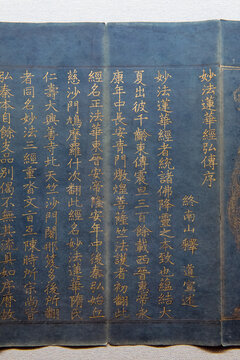 妙法蓮華經弘傳序
終南山釋 道宣述
妙法蓮華經者統諸佛降靈之本致也蘊結大
夏出彼千齡東傳震旦三百餘載西晉惠帝永
康年中長安青門燉煌菩薩竺法護者初翻此
經名正法華東晉安帝隆安年中後秦弘始龜
茲沙門鳩摩羅什次翻此經名妙法蓮華隋氏
仁壽大興善寺北天竺沙門闍那笈多後所翻
者同名妙法三經重沓文旨互陳時所宗尚皆
弘秦本自餘支品別偈不無其流具如序曆故